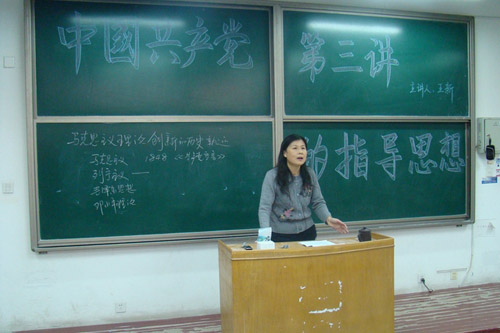 中國共产党
第三讲
主讲人：王新
的指导思想
马克思主义理论创新的历史轨迹
马克思主义 1848《共产党宣言》
列宁主义 —
毛泽东思想
邓小平理论